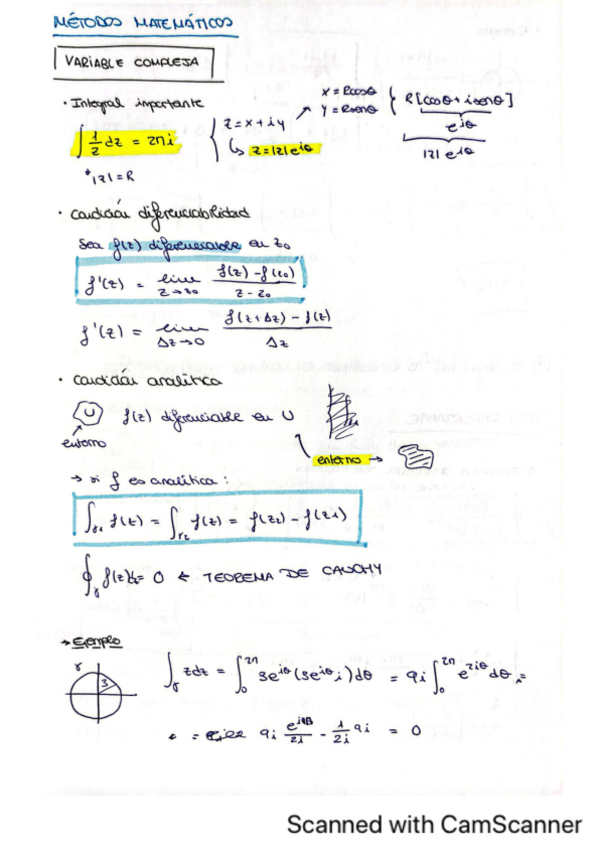 MÉTODOS MATEMÁTICOS
VARIABLE COMPLEJA
· Integral importante
∫ 1/z dz = 2πi
*|z|=R
{ z = x + iy
↳ z = |z| e^iθ
↗ x = Rcosθ
y = Rsenθ
{ R[cosθ + i senθ]
e^iθ
|z| e^iθ
· condición diferenciabilidad
Sea f(z) diferenciable en z₀
f'(z) = lim z→z₀ (f(z) - f(z₀))/(z - z₀)
f'(z) = lim Δz→0 (f(z+Δz) - f(z))/Δz
· condición analítica
U f(z) diferenciable en U
entorno
entorno →
→ si f es analítica:
∫γ₁ f(z) = ∫γ₂ f(z) = f(z₂) - f(z₁)
∮γ f(z)dz = 0 ← TEOREMA DE CAUCHY
→ Ejemplo
γ
3
∫γ zdz = ∫₀^2π 3e^iθ (3e^iθ i)dθ = 9i ∫₀^2π e^2iθ dθ =
= 9i - 1/2i 9i = 0
Scanned with CamScanner